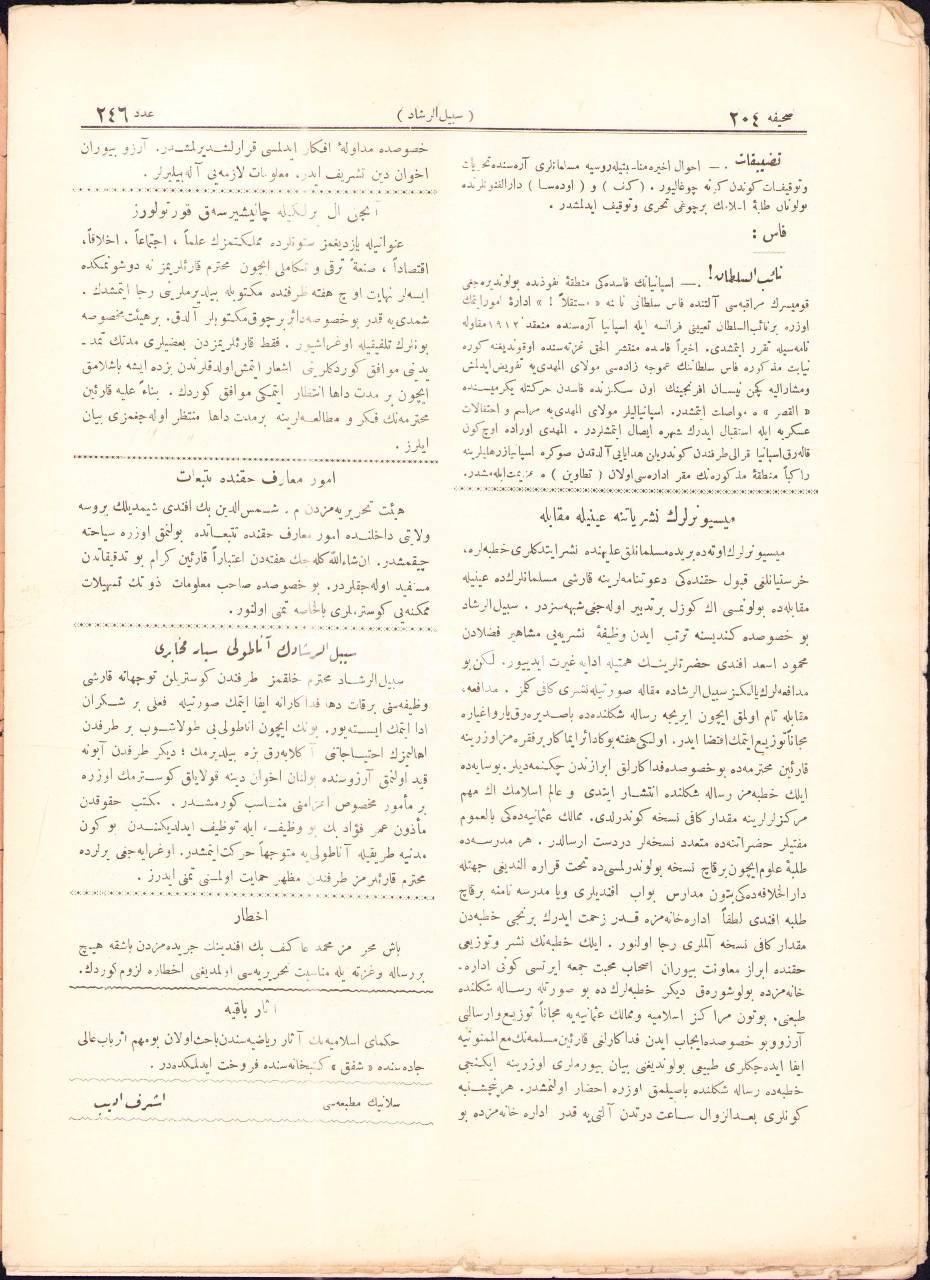 صحیفه ٢٠٤
( سبیل‌الرشاد )
عدد ٢٤٦
تضییقات .— احوال اخیره مناسبتیله روسیه مسلمانلری آره‌سنده تحریات
وتوقیفات کوندن کونه چوغالیور . (کیف) و (اوده‌سا) دارالفنونلرنده
بولونان طلبهٔ اسلامك برچوغی تحری وتوقیف ایدلمشدر .
فاس :
نائب‌السلطان! .— اسپانیانك فاسده‌کی منطقهٔ نفوذنده بولوندیره‌جغی
قومیسرك مراقبه‌سی آلتنده فاس سلطانی نامنه « مستقلاً ! » ادارهٔ امور ایتمك
اوزره برنائب‌السلطان تعیینی فرانسه ایله اسپانیا آره‌سنده منعقد ١٩١٢ مقاوله
نامه‌سیله تقرر ایتمشدی. اخیراً فاسده منتشر الحق غزته‌سنده اوقوندیغنه کوره
نیابت مذکوره فاس سلطاننك عموجه زاده‌سی مولای المهدی‌یه تفویض ایدلمش
ومشارالیه کچن نیسان افرنجینك اون سکزنده فاسدن حرکتله یکرمیسنده
« القصر » ه مواصلت ایتمشدر. اسپانیالیلر مولای المهدی‌یه مراسم و احتفالات
عسکریه ایله استقبال ایدرك شهره ایصال ایتمشلردر . المهدی اوراده اوچ کون
قاله‌رق اسپانیا قرالی طرفندن کوندریلن هدایایی آلدقدن صوکره اسپانیا زرهلیلرینه
راکباً منطقهٔ مذکوره‌نك مقر اداره‌سی اولان ( تطاوین ) ه عزیمت ایله‌مشدر.
میسیونرلرك نشریاتنه عینیله مقابله
میسیونرلرك اوته‌ده بریده مسلمانلق علیهنده نشر ایتدکلری خطبه‌لره،
خرستیانلغی قبول حقنده‌کی دعوتنامه‌لرینه قارشی مسلمانلرك‌ده عینیله
مقابله‌ده بولونمسی اك کوزل برتدبیر اوله‌جغی شبهه‌سزدر. سبیل‌الرشاد
بو خصوصده کندیسنه ترتب ایدن وظیفهٔ نشریه‌یی مشاهیر فضلادن
محمود اسعد افندی حضرتلرینك همتیله ادایه غیرت ایدییور. لکن بو
مدافعه‌لرك یالکز سبیل‌الرشاده مقاله صورتیله نشری کافی کلمز . مدافعه،
مقابله تام اولمق ایچون ایریجه رساله شکلنده‌ده باصدیره‌رق یار واغیاره
مجاناً توزیع ایتمك اقتضا ایدر. اولکی هفته بوکا دائر ایما کار بر فقره‌مز اوزرینه
قارئین محترمه‌ده بو خصوصده فداکارلق ابرازندن چکنمه‌دیلر. بوسایه‌ده
ایلك خطبه‌مز رساله شکلنده انتشار ایتدی و عالم اسلامك اك مهم
مرکزلرلرینه مقدار کافی نسخه کوندرلدی. ممالك عثمانیه‌ده‌کی بالعموم
مفتیلر حضراتنه‌ده متعدد نسخه‌لر دردست ارسالدر . هر مدرسه‌ده
طلبهٔ علوم ایچون برقاچ نسخه بولوندرلمسی‌ده تحت قراره آلندیغی جهتله
دارالخلافه‌ده‌کی بتون مدارس بواب افندیلری ویا مدرسه نامنه برقاچ
طلبه افندی لطفاً اداره‌خانه‌مزه قدر زحمت ایدرك برنجی خطبه‌دن
مقدار کافی نسخه آلملری رجا اولنور . ایلك خطبه‌نك نشر وتوزیعی
حقنده ابراز معاونت بیوران اصحاب محبت جمعه ایرتسی کونی اداره‌-
خانه‌مزده بولوشورق دیکر خطبه‌لرك‌ده بو صورتله رساله شکلنده
طبعنی، بوتون مراکز اسلامیه وممالك عثمانیه‌یه مجاناً توزیع وارسالنی
آرزو و بو خصوصده ایجاب ایدن فداکارلغی قارئین مسلمه‌نك مع‌الممنونیه
ایفا ایده‌جکلری طبیعی بولوندیغنی بیان بیورملری اوزرینه ایکنجی
خطبه‌ده رساله شکلنده باصیلمق اوزره احضار اولنمشدر. هر پنجشنبه
کونلری بعدالزوال ساعت درتدن آلتی‌یه قدر اداره خانه‌مزده بو
خصوصده مداولهٔ افکار ایدلمسی قرارلشدیرلمشدر. آرزو بیوران
اخوان دین تشریف ایدر، معلومات لازمه‌یی آله‌بیلیرلر .
آنجق ال برلکیله چالیشیرسه‌ق قورتولورز
عنوانیله یازدیغمز ستونلرده مملکتمزك علماً ، اجتماعاً ، اخلاقاً،
اقتصاداً ، صنعةً ترقی و تکاملی ایچون محترم قارئلریمز نه دوشونمکده
ایسه‌لر نهایت اوچ هفته ظرفنده مکتوبله بیلدیرملرینی رجا ایتمشدك .
شمدی‌یه قدر بو خصوصه دائر برچوق مکتوبلر آلدق. برهیئت مخصوصه
بونلرك تلفیقیله اوغراشیور. فقط قارئلریمزدن بعضیلری مدتك تمد-
یدنی موافق کوردکلرینی اشعار ایتمش اولدقلرندن بزده ایشه باشلامق
ایچون بر مدت داها انتظار ایتمکی موافق کوردك . بناءً علیه قارئین
محترمه‌نك فکر و مطالعه‌لرینه برمدت داها منتظر اوله‌جغمزی بیان
ایلرز .
امور معارف حقنده تتبعات
هیئت تحریریه‌مزدن م . شمس‌الدین بك افندی شیمدیلك بروسه
ولایتی داخلنده امور معارف حقنده تتبعاتده بولنمق اوزره سیاحته
چیقمشدر. ان‌شاءالله کله‌جك هفته‌دن اعتباراً قارئین کرام بو تدقیقاتدن
مستفید اوله‌جقلردر. بو خصوصده صاحب معلومات ذواتك تسهیلات
ممکنه‌یی کوسترملری بالخاصه تمنی اولنور .
سبیل‌الرشادك آناطولی سیار مخابری
سبیل‌الرشاد محترم خلقمز طرفندن کوستریلن توجهاته قارشی
وظیفه‌سنی برقات دها فداکارانه ایفا ایتمك صورتیله فعلی بر شکران
ادا ایتمك ایسته‌یور. بونك ایچون اناطولی‌یی طولاشوب بر طرفدن
اهالیمزك احتیاجاتنی آکلایه‌رق بزه بیلدیرمك ؛ دیکر طرفدن آبونه
قید اولنمق آرزوسنده بولنان اخوان دینه قولایلق کوسترمك اوزره
بر مأمور مخصوص اعزامنی مناسب کورمشدر . مکتب حقوقدن
مأذون عمر فؤاد بك بو وظیفه ایله توظیف ایدلدیکندن بو کون
مدنیه طریقیله آناطولی‌یه متوجهاً حرکت ایتمشدر. اوغرایه‌جغی یرلرده
محترم قارئلرمز طرفندن مظهر حمایت اولمسنی تمنی ایدرز .
اخطار
باش محررمز محمد عاکف بك افندینك جریده‌مزدن باشقه هیچ
بر رساله وغزته یله مناسبت تحریریه‌سی اولمدیغنی اخطاره لزوم کوردك.
آثار باقیه
حکمای اسلامیه‌نك آثار ریاضیه‌سندن باحث اولان بو مهم اثر باب عالی
جاده‌سنده « شفق » کتبخانه‌سنده فروخت ایدلمکده‌در .
سلانیك مطبعه‌سی
اشرف ادیب